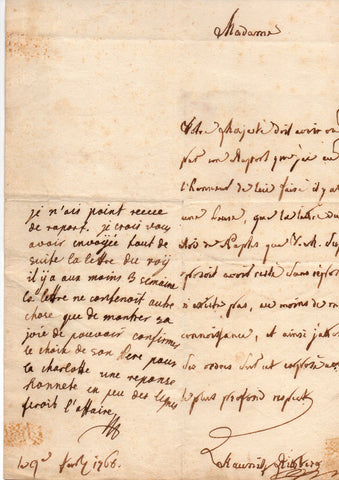 Madame
Votre Majesté doit avoir vu
par un Raport que j'ai eu
l'honneur de lui faire il y a
une heure, que la lettre du
Roi de Naples que V. M.
avoit resté sans
n'existe pas, au moins de
connoissance, et ainsi j'
des ordres et
le plus profond respect
Kaunitz Rittberg
je n'ais point recue
de raport. je crois vous
avoir envoyée tout de
suite la lettre du roy
il ÿ a aux moins 3 semaine
la lettre ne contenoit autre
chose que de montrer sa
joie de pouvoir confirmer
le choix de son Pere pour
la charlotte une reponse
honnete en peu des lignes
feroit l'affaire
le 9e 1768.